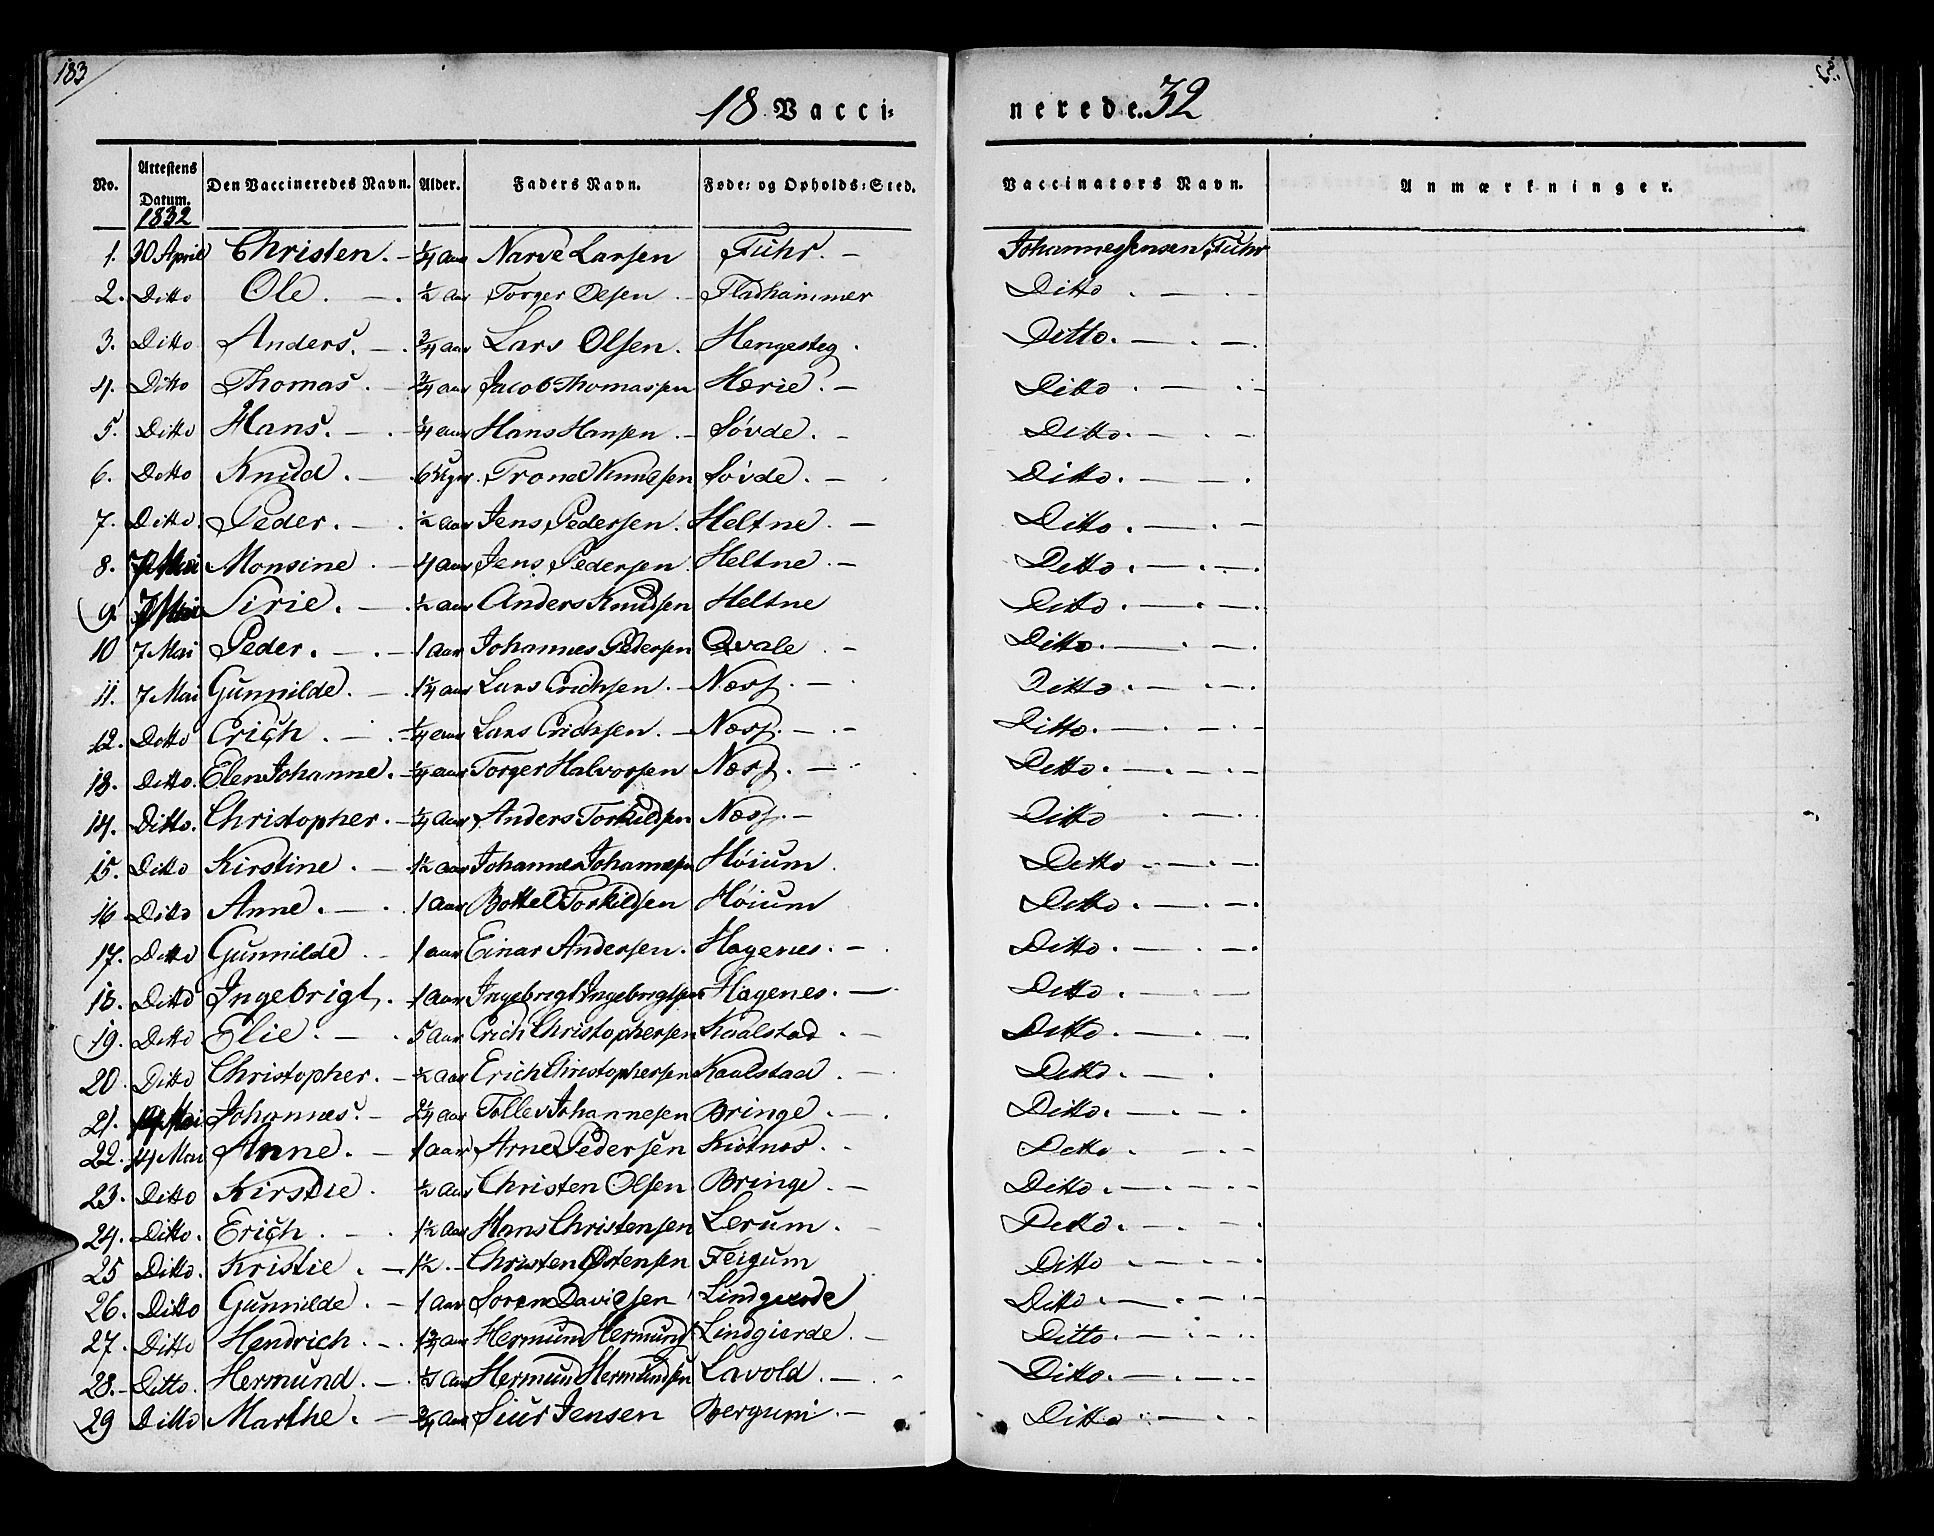 183
18 Vacci-
nerede. 32
No. Attestens Datum. Den Vaccineredes Navn. Alder. Faders Navn. Føde- og Opholds-Sted. Vaccinators Navn. Anmærkninger.
1832
1. 30 April Christen. - 1/4 aar Narve Larsen Fuhr. - Johannes Jensen Fuhr
2. Ditto Ole. - . 1/2 aar Torger Olsen - Fladhammer Ditto . - . -
3. Ditto Anders. - . 3/4 aar Lars Olsen. Hengesteg . Ditto. - . -
4. Ditto Thomas. - 3/4 aar Jacob Thomassen Hærie. - Ditto . - . -
5. Ditto Hans. - . - 1/4 aar Hans Hansen. - Søvde. - Ditto. - . -
6. Ditto Knud . - 6 Uger. Trond Knudsen Søvde. - Ditto. - - .
7. Ditto. Peder. - . 1/2 aar Jens Pedersen. Heltne. - Ditto . - . -
8. 7 Mai Monsine . - 4 aar Jens Pedersen. Heltne. - Ditto . - . -
9. 7 Mai Sirie. - . 1/2 aar Anders Knudsen Heltne Ditto . - . -
10 7 Mai Peder. - . - 1 aar Johannes Pedersen Qvale . - Ditto. - . -
11. 7 Mai Gunnilde. - . 1 1/4 aar Lars Erichsen. - Næss. - . Ditto. - . -
12. Ditto Erich . - . - 1/4 aar Lars Erichsen. - Næss. - . - Ditto. - . -
13. Ditto. Elen Johanne. - 1/4 aar Torger Halvorsen Næss. - . Ditto. - . - . -
14. Ditto. Christopher. - 1/4 aar Anders Torkildsen Næss. - Ditto . - . -
15. Ditto Kirstine . - 1 1/2 aar Johannes Johannesen Høium . Ditto . - . -
16 Ditto Anne. - . . 1 aar Bottel Torkildsen Høium Ditto . - . - .
17. Ditto Gunnilde . - . 1 aar Einar Andersen. Hagenes. - . Ditto . - . -
18. Ditto Ingebrigt. . 1 aar Ingebrigt Ingebrigtsen Hagenes. - . Ditto . - . -
19. Ditto Elie. - . 5 aar Erich Christophersen Kaalstad . - Ditto . - . -
20. Ditto Christopher. - 1/2 aar Erich Christophersen Kaalstad . - . Ditto . - .
21. 14 Mai Johannes. - 2 1/4 aar Tollev Johannesen Bringe. - . Ditto. . - . - .
22. 14 Mai Anne. - 1 aar Arne Pedersen Kiotnes. - . Ditto . - . -
23. Ditto Kirstie . 1/2 aar Christen Olsen. Bringe . - Ditto . - . - . -
24. Ditto. Erich . - . 1 1/2 aar Hans Christensen Lerum. - Ditto . - . - .
25 Ditto. Kristie . - . 1 1/2 . - Christen Østensen Feigum Ditto . - . - . -
26. Ditto Gunnilde. - 1 aar Søren Davidsen Lindgierde Ditto . - . - . -
27. Ditto Hendrich. - . 1 3/4 aar Hermund Hermunds Lindgierde. - Ditto. - . - . .
28. - Ditto. Hermund. - . aar Hermund Hermundsen Lavold . - . - Ditto. - . - . -
29 Ditto Marthe. - 3/4 aar Siur Jensen Bergum . - Ditto . - . - .